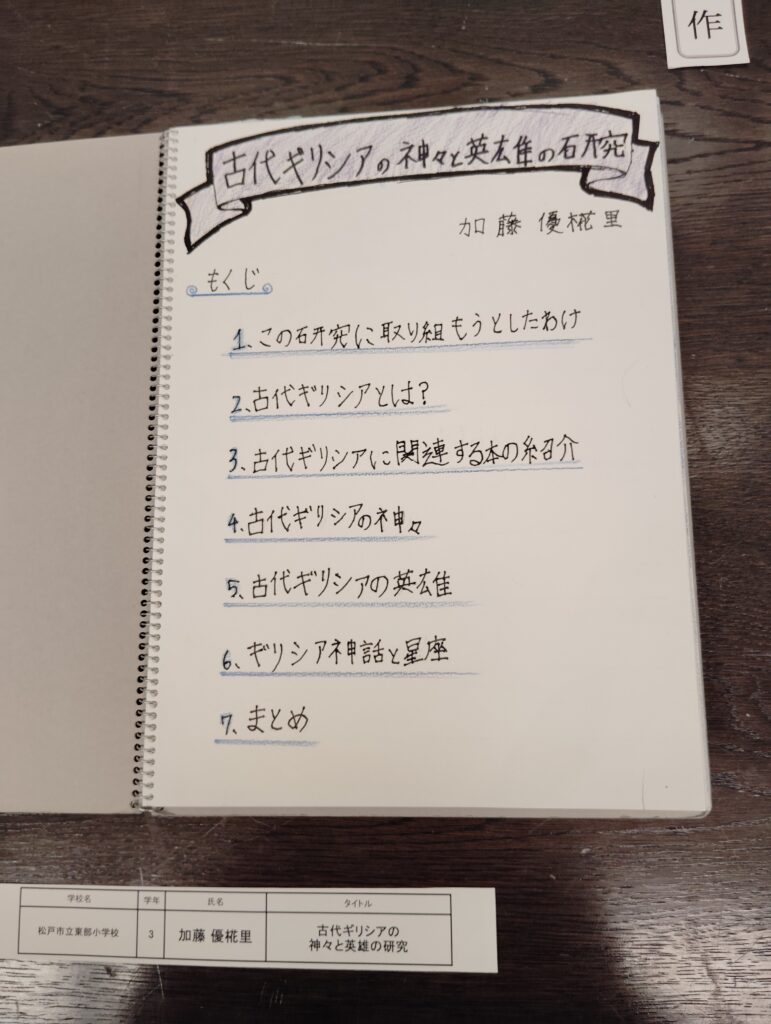 作
古代ギリシアの神々と英雄の研究
加藤 優椛里
もくじ
1、この研究に取り組もうとしたわけ
2、古代ギリシアとは?
3、古代ギリシアに関連する本の紹介
4、古代ギリシアの神々
5、古代ギリシアの英雄
6、ギリシア神話と星座
7、まとめ
学校名 学年 氏名 タイトル
松戸市立東部小学校 3 加藤 優椛里 古代ギリシアの
神々と英雄の研究